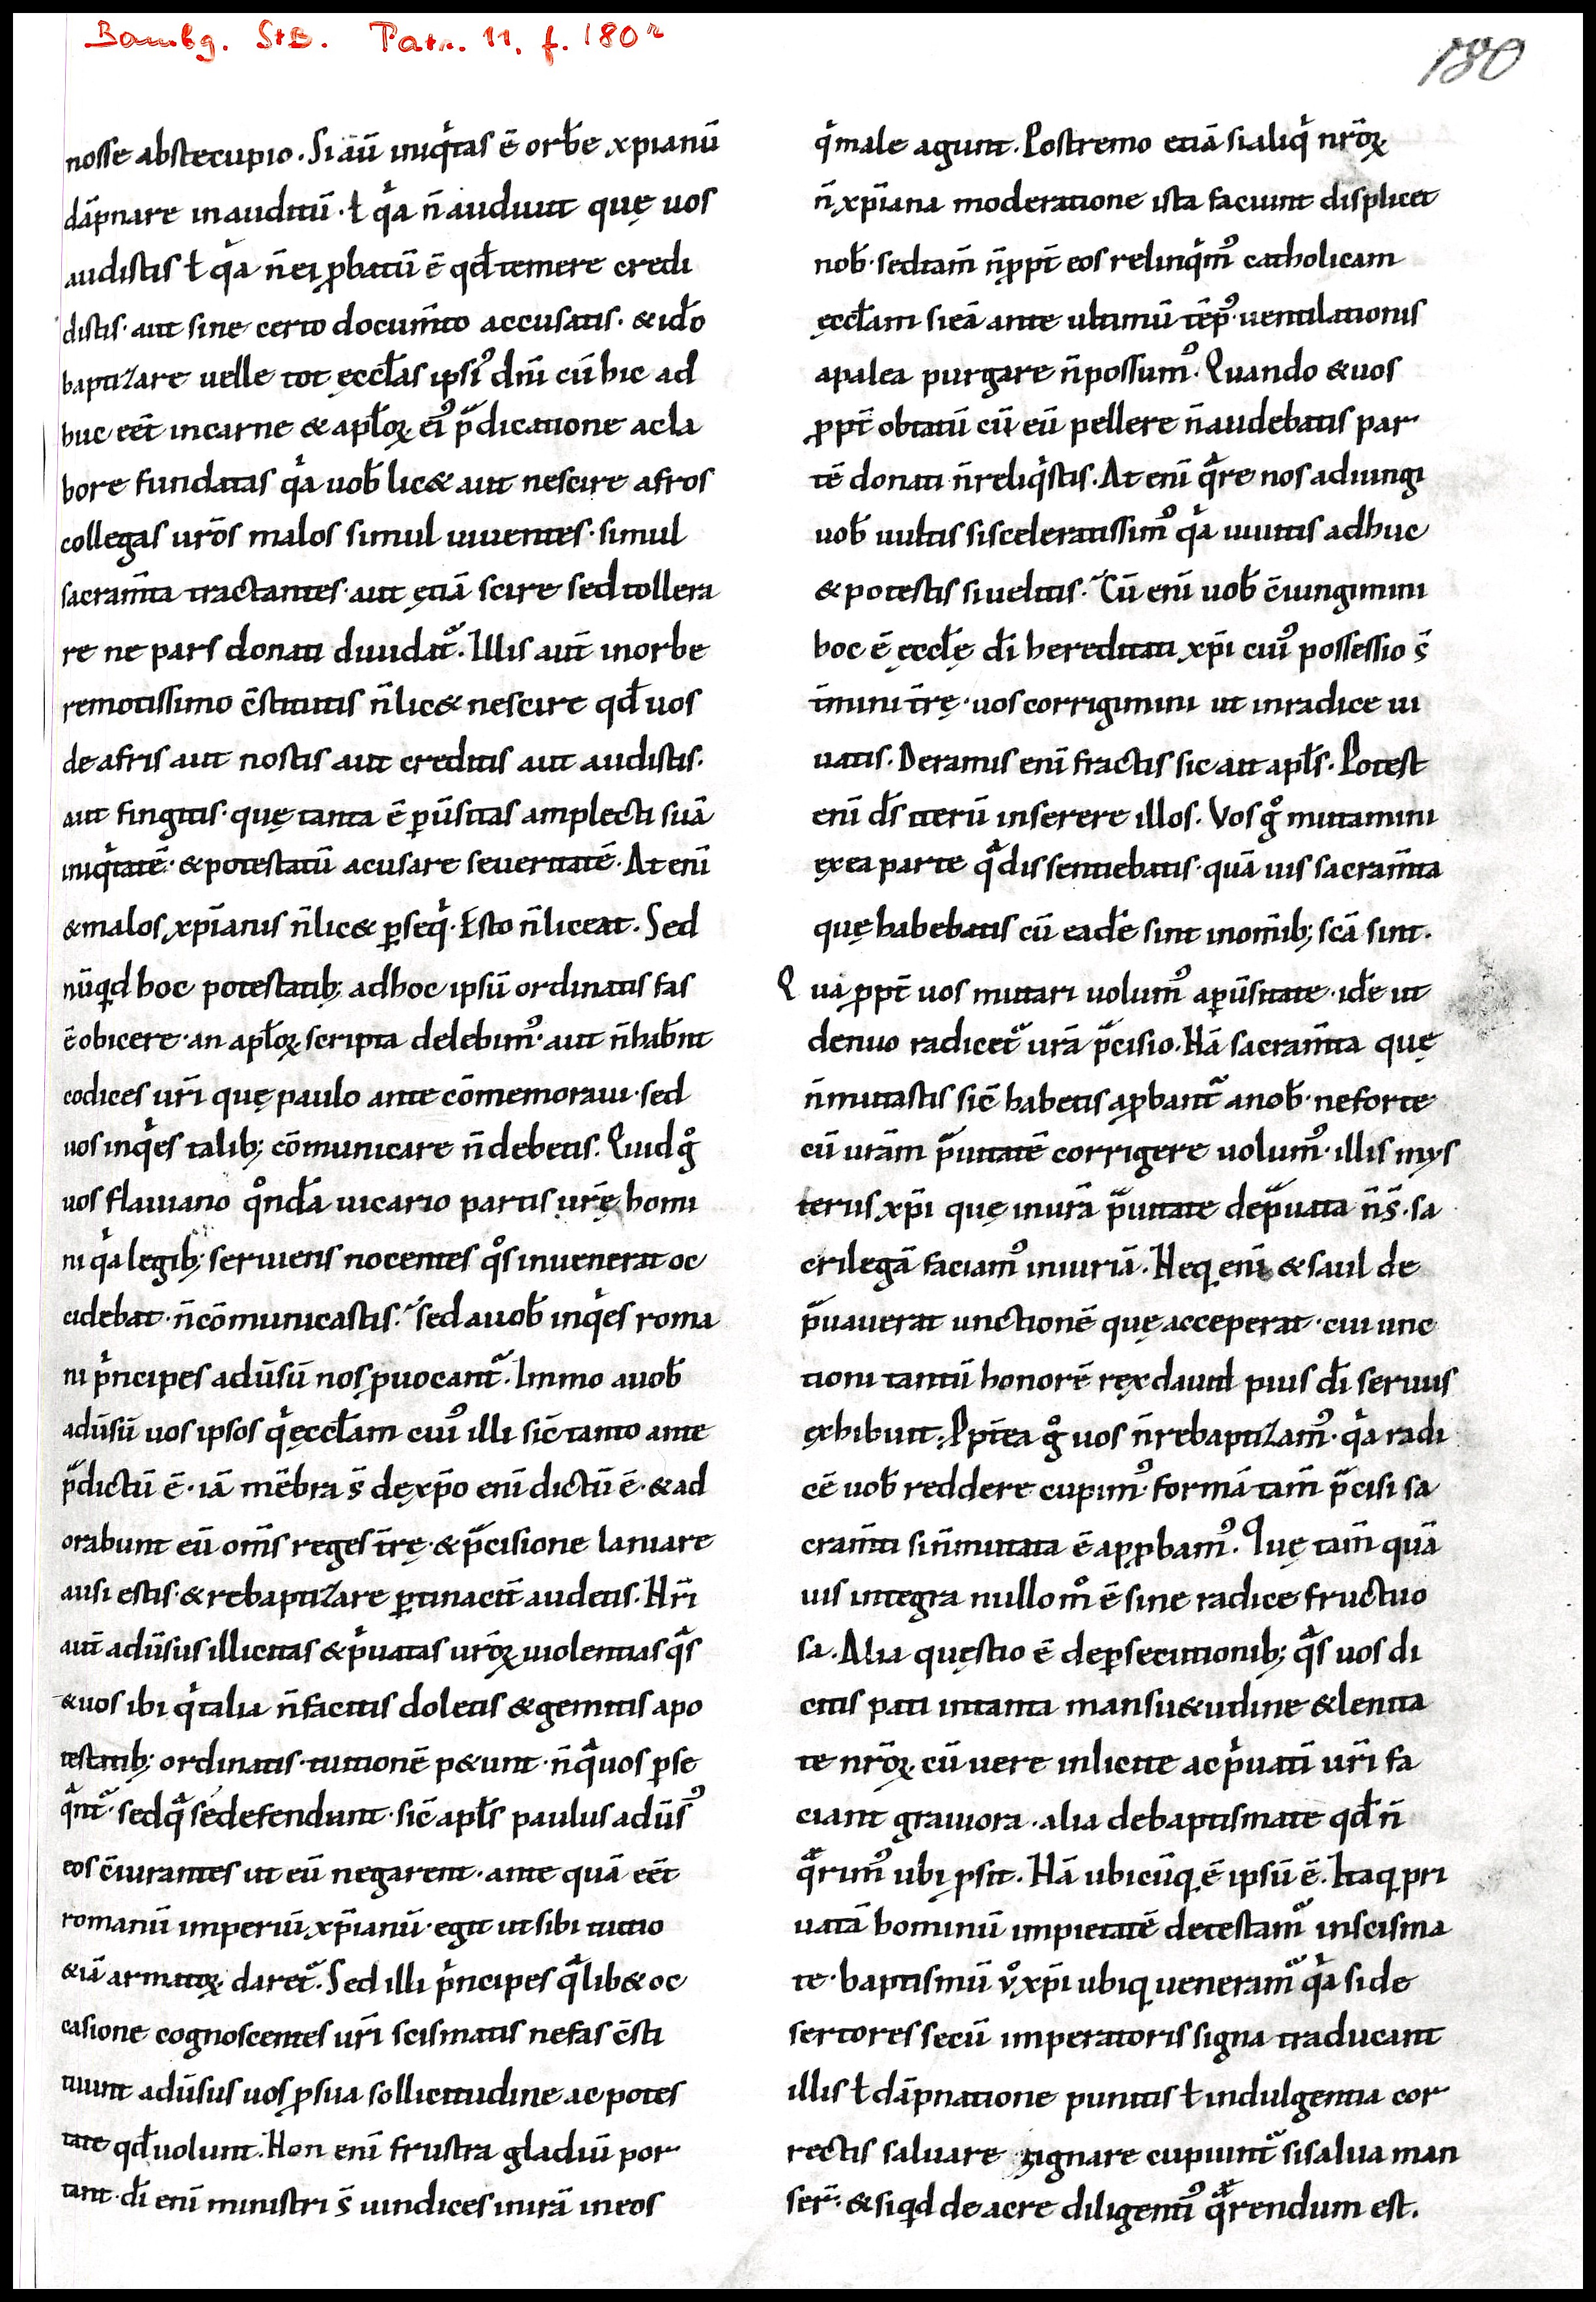 Bambg. StB. Patr. 11, f. 180ʳ
180
nosse abstecupio. Si aū iniqͥtas ē orbē xpianū
dāpnare inauditū. ł qͥa n̄ audiuit quę uos
audistis ł qͥa n̄ ei ꝓbatū ē qd̄ temere credi
distis· aut sine certo docum̄to accusatis· & id̄o
baptizare uelle tot ęccl̄as ipsiꝰ dn̄i cū hic ad
huc eēt in carne & apl̄oꝝ eiꝰ p̄dicatione ac la
bore fundatas qͥa uob̄ lic& aut nescire afros
collegas ur̄os malos simul uiuentes· simul
sacram̄ta tractantes· aut ętiā scire sed tollera
re ne pars donati diuidat᷑. Illis aut̄ in orbe
remotissimo c̄stitutis n̄ lic& nescire qd̄ uos
de afris aut nostis aut creditis aut audistis.
aut fingitis· quę tanta ē ꝑūsitas amplecti suā
iniqͥtatē· & potestatū acusare seueritatē. At eni̅
& malos xp̄ianis n̄ lic& ꝑseqͥ. Esto n̄ liceat. Sed
nūqͥd hoc potestatib; ad hoc ipsū ordinatis fas
ē obicere· an apl̄oꝝ scripta delebimꝰ· aut n̄ hab̄nt
codices ur̄i quę paulo ante cōmemoraui· sed
uos inqͥes talib; cōmunicare n̄ debetis. Quid gͦ
uos flauiano qͦndā uicario partis ur̄ę homi
ni qͥa legib; seruiens nocentes qͦs inuenerat oc
cidebat· n̄ cōmunicastis. Sed a uob̄ inqͥes roma
ni pͥncipes adūsū nos ꝓuocant᷑. Immo a uob̄
adūsū uos ipsos qͥ ęccl̄am cuiꝰ illi sic̄ tanto ante
p̄dictū ē· iā mēbra s̄ de xp̄o eni̅ dictū ē· & ad
orabunt eū om̄s reges tr̄ę· & p̄cisione laniare
ausi estis· & rebaptizare ꝑtinacit̄ audetis. Nr̄i
aut̄ adūsus illicitas & pͥuatas ur̄oꝝ uiolentias qᷓs
& uos ibi qͥ talia n̄ facitis doletis & gemitis a po
testatib; ordinatis· tuitionē p&unt· n̄ qᷓ uos ꝑse
qᷓnt᷑· sed qᷓ se defendunt· sic̄ apl̄s paulus adūsꝰ
eos c̄iurantes ut eū negarent· ante quā eēt
romanū imperiū xp̄ianū· egit ut sibi tuitio
&iā armatoꝝ daret᷑. Sed illi pͥncipes qᷓlib& oc
casione cognoscentes ur̄i scismatis nefas c̄sti
tuunt adūsus uos ꝓ sua sollicitudine ac potes
tate qd̄ uolunt. Non eni̅ frustra gladiū por
tant· dī eni̅ ministri s̄ uindices in irā in eos
qͥ male agunt. Postremo etiā si aliqͥ nr̄oꝝ
n̄ xp̄iana moderatione ista faciunt displicet
nob̄· sed tam̄ n̄ ꝓpt̄ eos relinqͥmꝰ catholicam
ęccl̄am si eā ante ultimū tēpꝰ uentilationis
a palea purgare n̄ possumꝰ. Quando & uos
ꝓpt̄ obtatū cū eū pellere n̄ audebatis par
tē donati n̄ reliqͥstis. At eni̅ qᷓre nos adiungi
uob̄ uultis si sceleratissimꝰ qͥa uiuitis adhuc
& potestis si uelitis. Cū eni̅ uob̄ c̄iungimini
hoc ē ęccl̄ę dī hereditati xp̄i cuiꝰ possessio s̄
t̄mini tr̄ę· uos corrigimini ut in radice ui
uatis. De ramis eni̅ fractis sic ait apl̄s. Potest
eni̅ d̄s iterū inserere illos. Vos gͦ mutamini
ex ea parte qᷓ dissentiebatis· quā uis sacram̄ta
quę habebatis cū eadē sint in om̄ib; sc̄a sint.
Qua ꝓpt̄ uos mutari uolumꝰ a ꝑūsitate· idē ut
denuo radicet᷑ ur̄a p̄cisio. Nā sacram̄ta quę
n̄ mutastis sic̄ habetis aꝓbant᷑ a nob̄· ne forte
cū ur̄am p̄uitatē corrigere uolumꝰ· illis mys
teriis xp̄i quę in ur̄a p̄uitate dep̄uata n̄ s̄· sa
crilegā faciamꝰ iniuriā. Neq; eni̅ & saul de
p̄uauerat unctionē quę acceperat· cui unc
tioni tantū honorē rex dauid pius dī seruus
exhibuit. Ꝓpt̄ea gͦ uos n̄ rebaptizamꝰ· qͥa radi
cē uob̄ reddere cupimꝰ· formā tam̄ p̄cisi sa
cram̄ti si n̄ mutata ē apꝓbamꝰ. Quę tam̄ quā
uis integra nullo mͦ ē sine radice fructuo
sa. Alia quęstio ē de ꝑsecutionib; qᷓs uos di
citis pati in tanta mansu&udine & lenita
te nr̄oꝝ cū uere inlicite ac pͥuatī ur̄i fa
ciant grauiora· alia de baptismate qd̄ n̄
qᷓrimꝰ ubi ꝓsit. Nā ubicūq; ē ipsū ē. Itaq; pri
uatā hominū impietatē detestam᷑ in scisma
te· baptismū vͦ xp̄i ubiq; ueneram᷑ qͥa si de
sertores secū imperatoris signa traducant
illis ł dāpnatione punitis ł indulgentia cor
rectis saluare signare cupiunt᷑ si salua man
ser̄· & si qͥd de a cre diligentiꝰ qᷓrendum est.